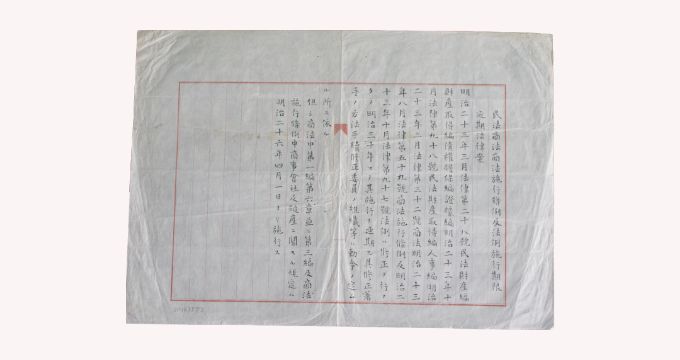 民法商法商法施行條例及法例施行期限
延期法律案
明治二十三年三月法律第二十八號民法財產編
財產取得編債權擔保編證據編明治二十三年十
月法律第九十八號民法財產取得編人事編明治
二十三年三月法律第三十二號商法明治二十三
年八月法律第五十九號商法施行條例及明治二
十三年十月法律第九十七號法例ハ修正ヲ行フ
タメ明治三十年マテ其施行ヲ延期ス其修正著
手ノ方法手續修正委員ノ組織等ハ勅令ノ定ム
ル所ニ依ル
但シ商法中第一編第六章並ニ第三編及商法
施行條例中商事會社及破產ニ關スル規定ハ
明治二十六年四月一日ヨリ施行ス